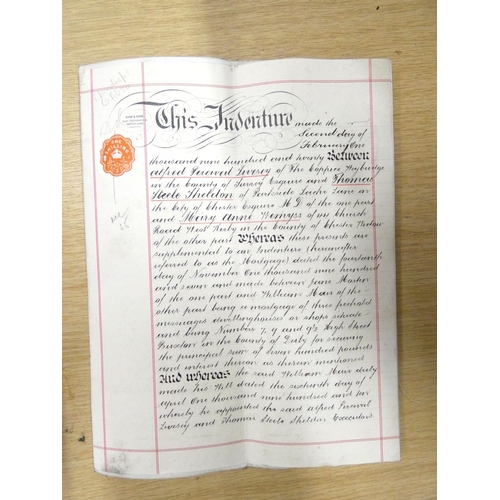 This Indenture made the
Second day of
February One
thousand nine hundred and twenty Between
Alfred Percival Livesey of The Coppice Weybridge
in the County of Surrey Esquire and Thomas
Steele Sheldon of Parkside Lache Lane in
the City of Chester Esquire M.D of the one part
and Mary Anne Wemyss of Church
Road West Kirby in the County of Chester
of the other part Whereas these presents are
supplemental to an Indenture (hereinafter
referred to as the Mortgage) dated the fourteenth
day of November One thousand nine hundred
and seven and made between Jane
of the one part and William Mair of the
other part being a mortgage of three freehold
messuages dwellinghouses or shops situate
and being Numbers 7, 9 and 9½ High Street
Buxton in the County of Derby for securing
the principal sum of Seven hundred pounds
and interest thereon as therein mentioned
And whereas the said William Mair duly
made his Will dated the sixteenth day of
April One thousand nine hundred and ten
whereby he appointed the said Alfred Percival
Livesey and Thomas Steele Sheldon Executors
ONE
SHILLING